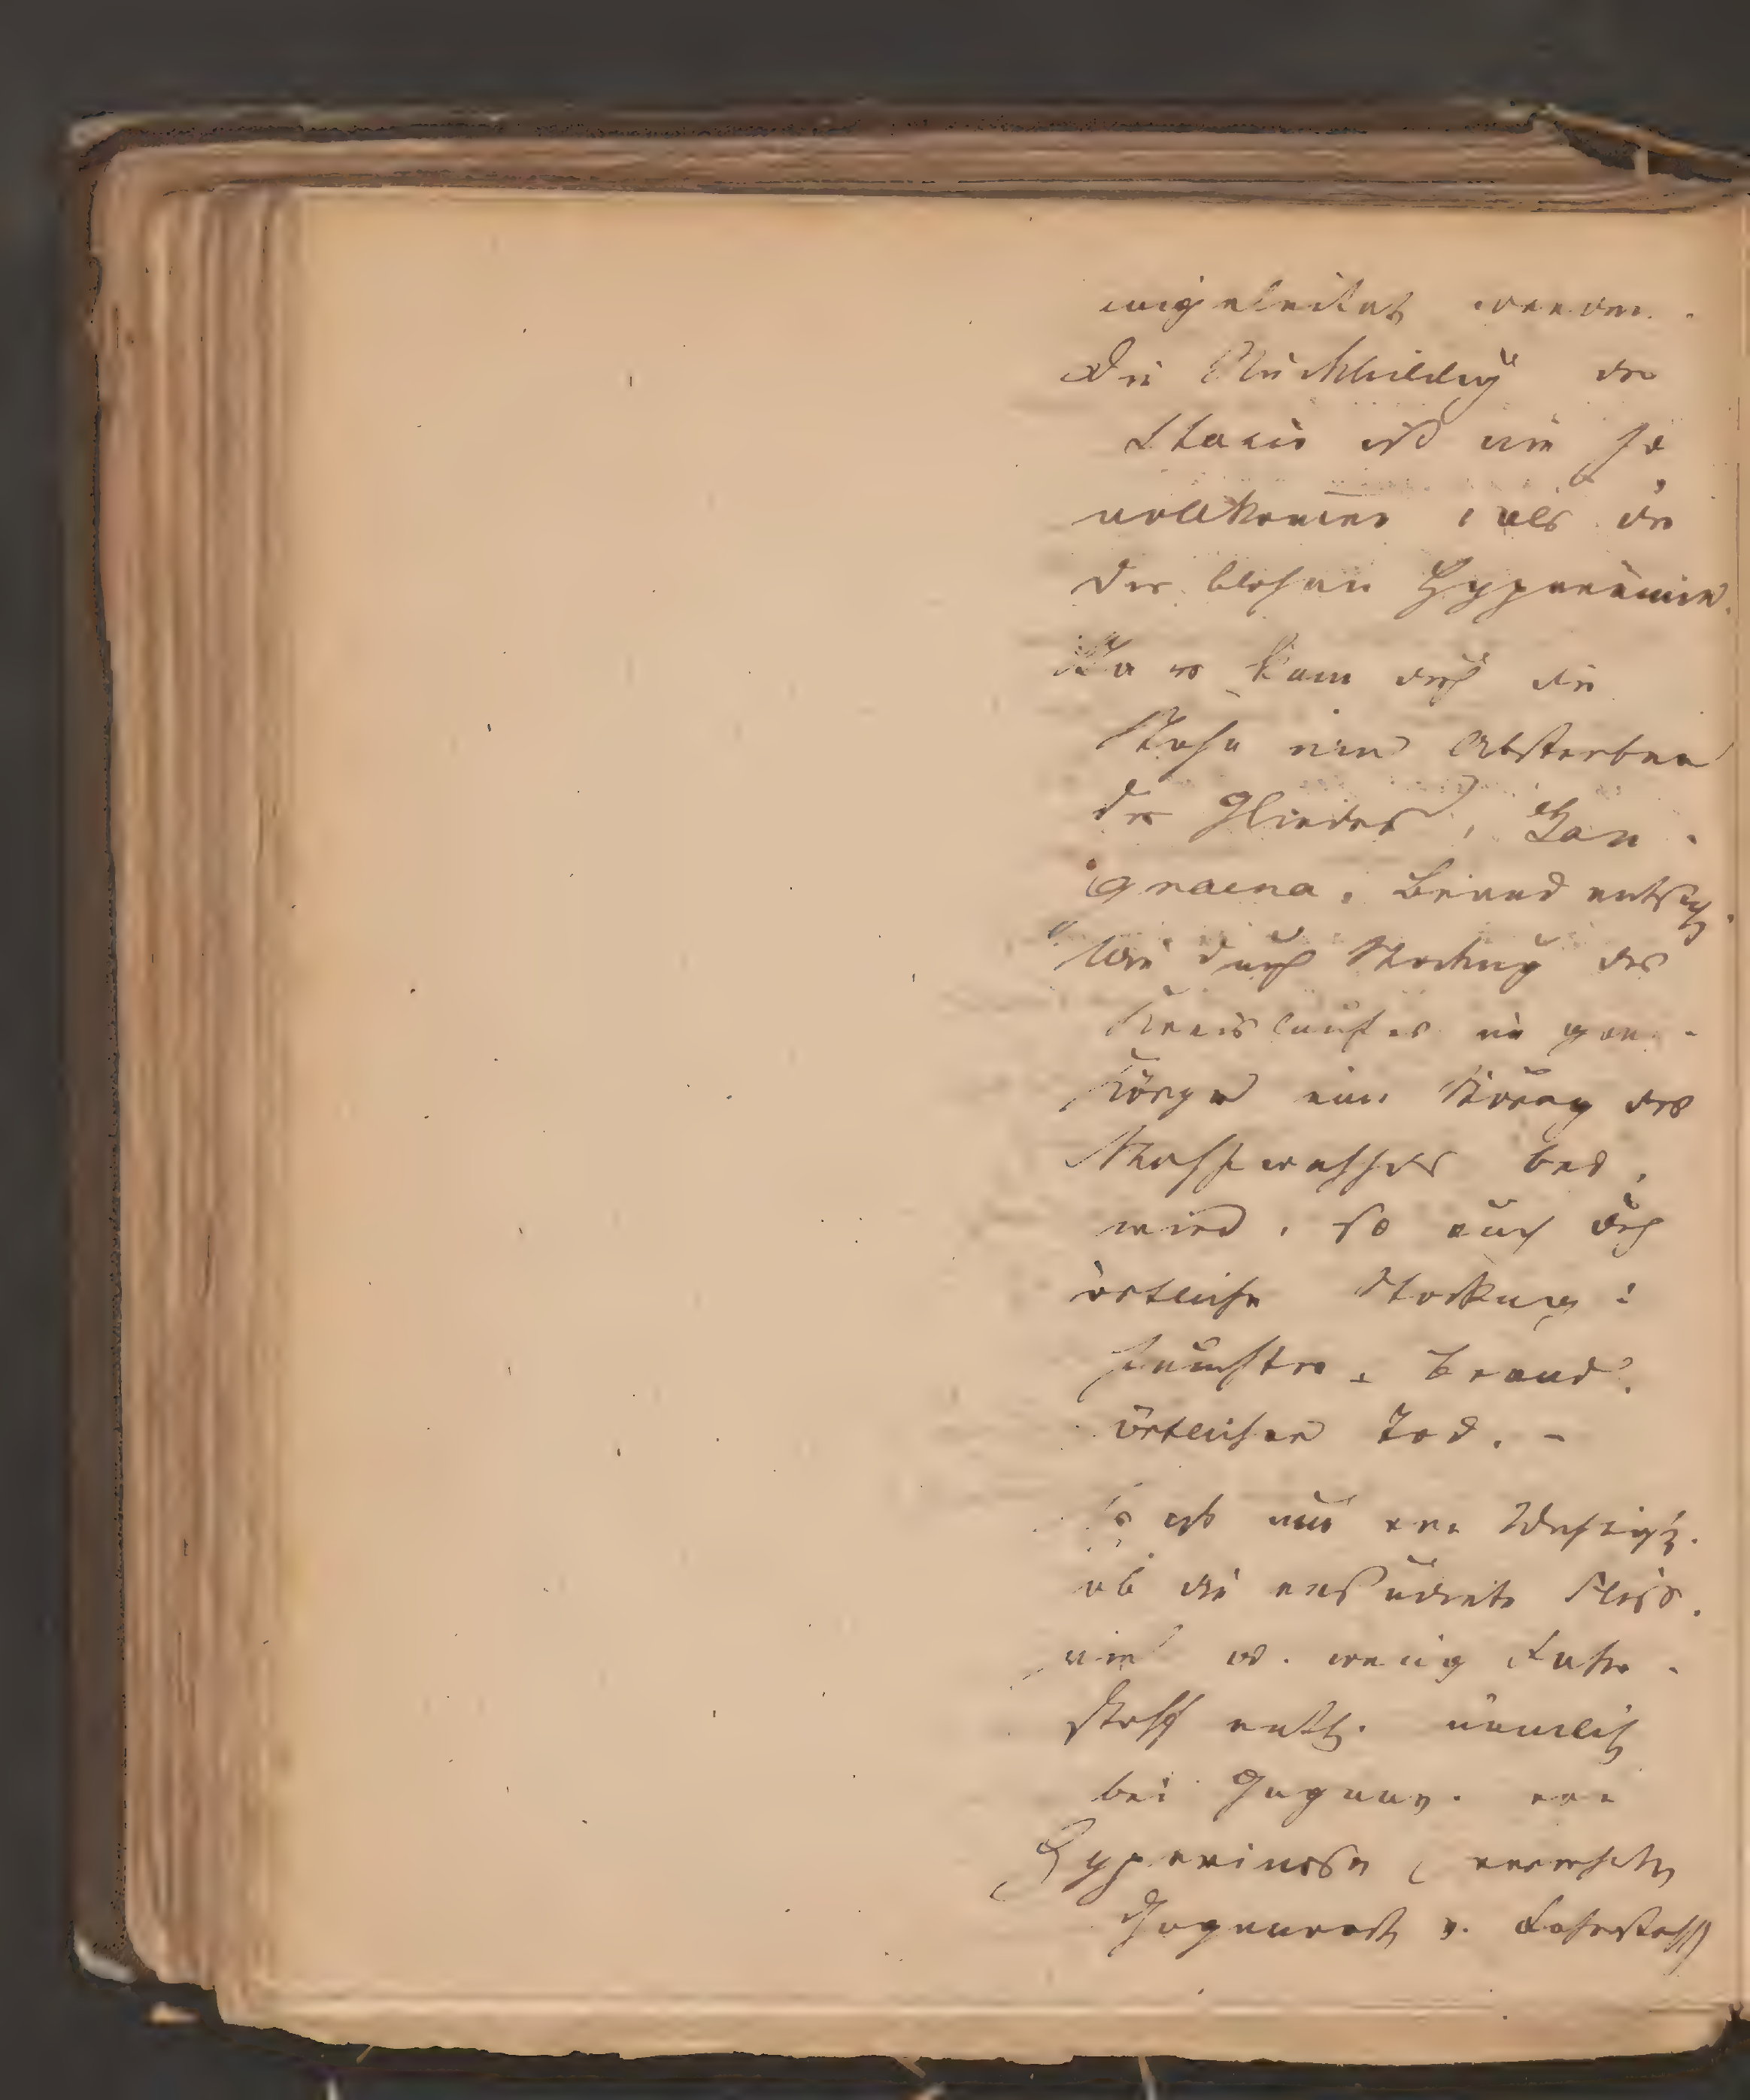 eingeleitet werden.
Die Rückbildung der
Stasis ist nie so
vollkommen, als die
der bloßen Hyperämie.
Ja es kann durch die
Stase ein Absterben
des Gliedes, Gan-
graena, Brand entsth.
Wie durch Stockung des
Kreislaufes im gan.
Körper eine Störung des
Stoffwechsels bed.
wird, so auch durch
örtliche Stockung:
feuchter Brand,
örtlicher Tod. –
Es ist nun von Wichtigk.
ob die exsudirte Flüss.
viel od. wenig Faser-
stoff enth. nämlich
bei Gegenw. von
Hyperinose (vermehrte
Gegenwart v. Faserstoff)